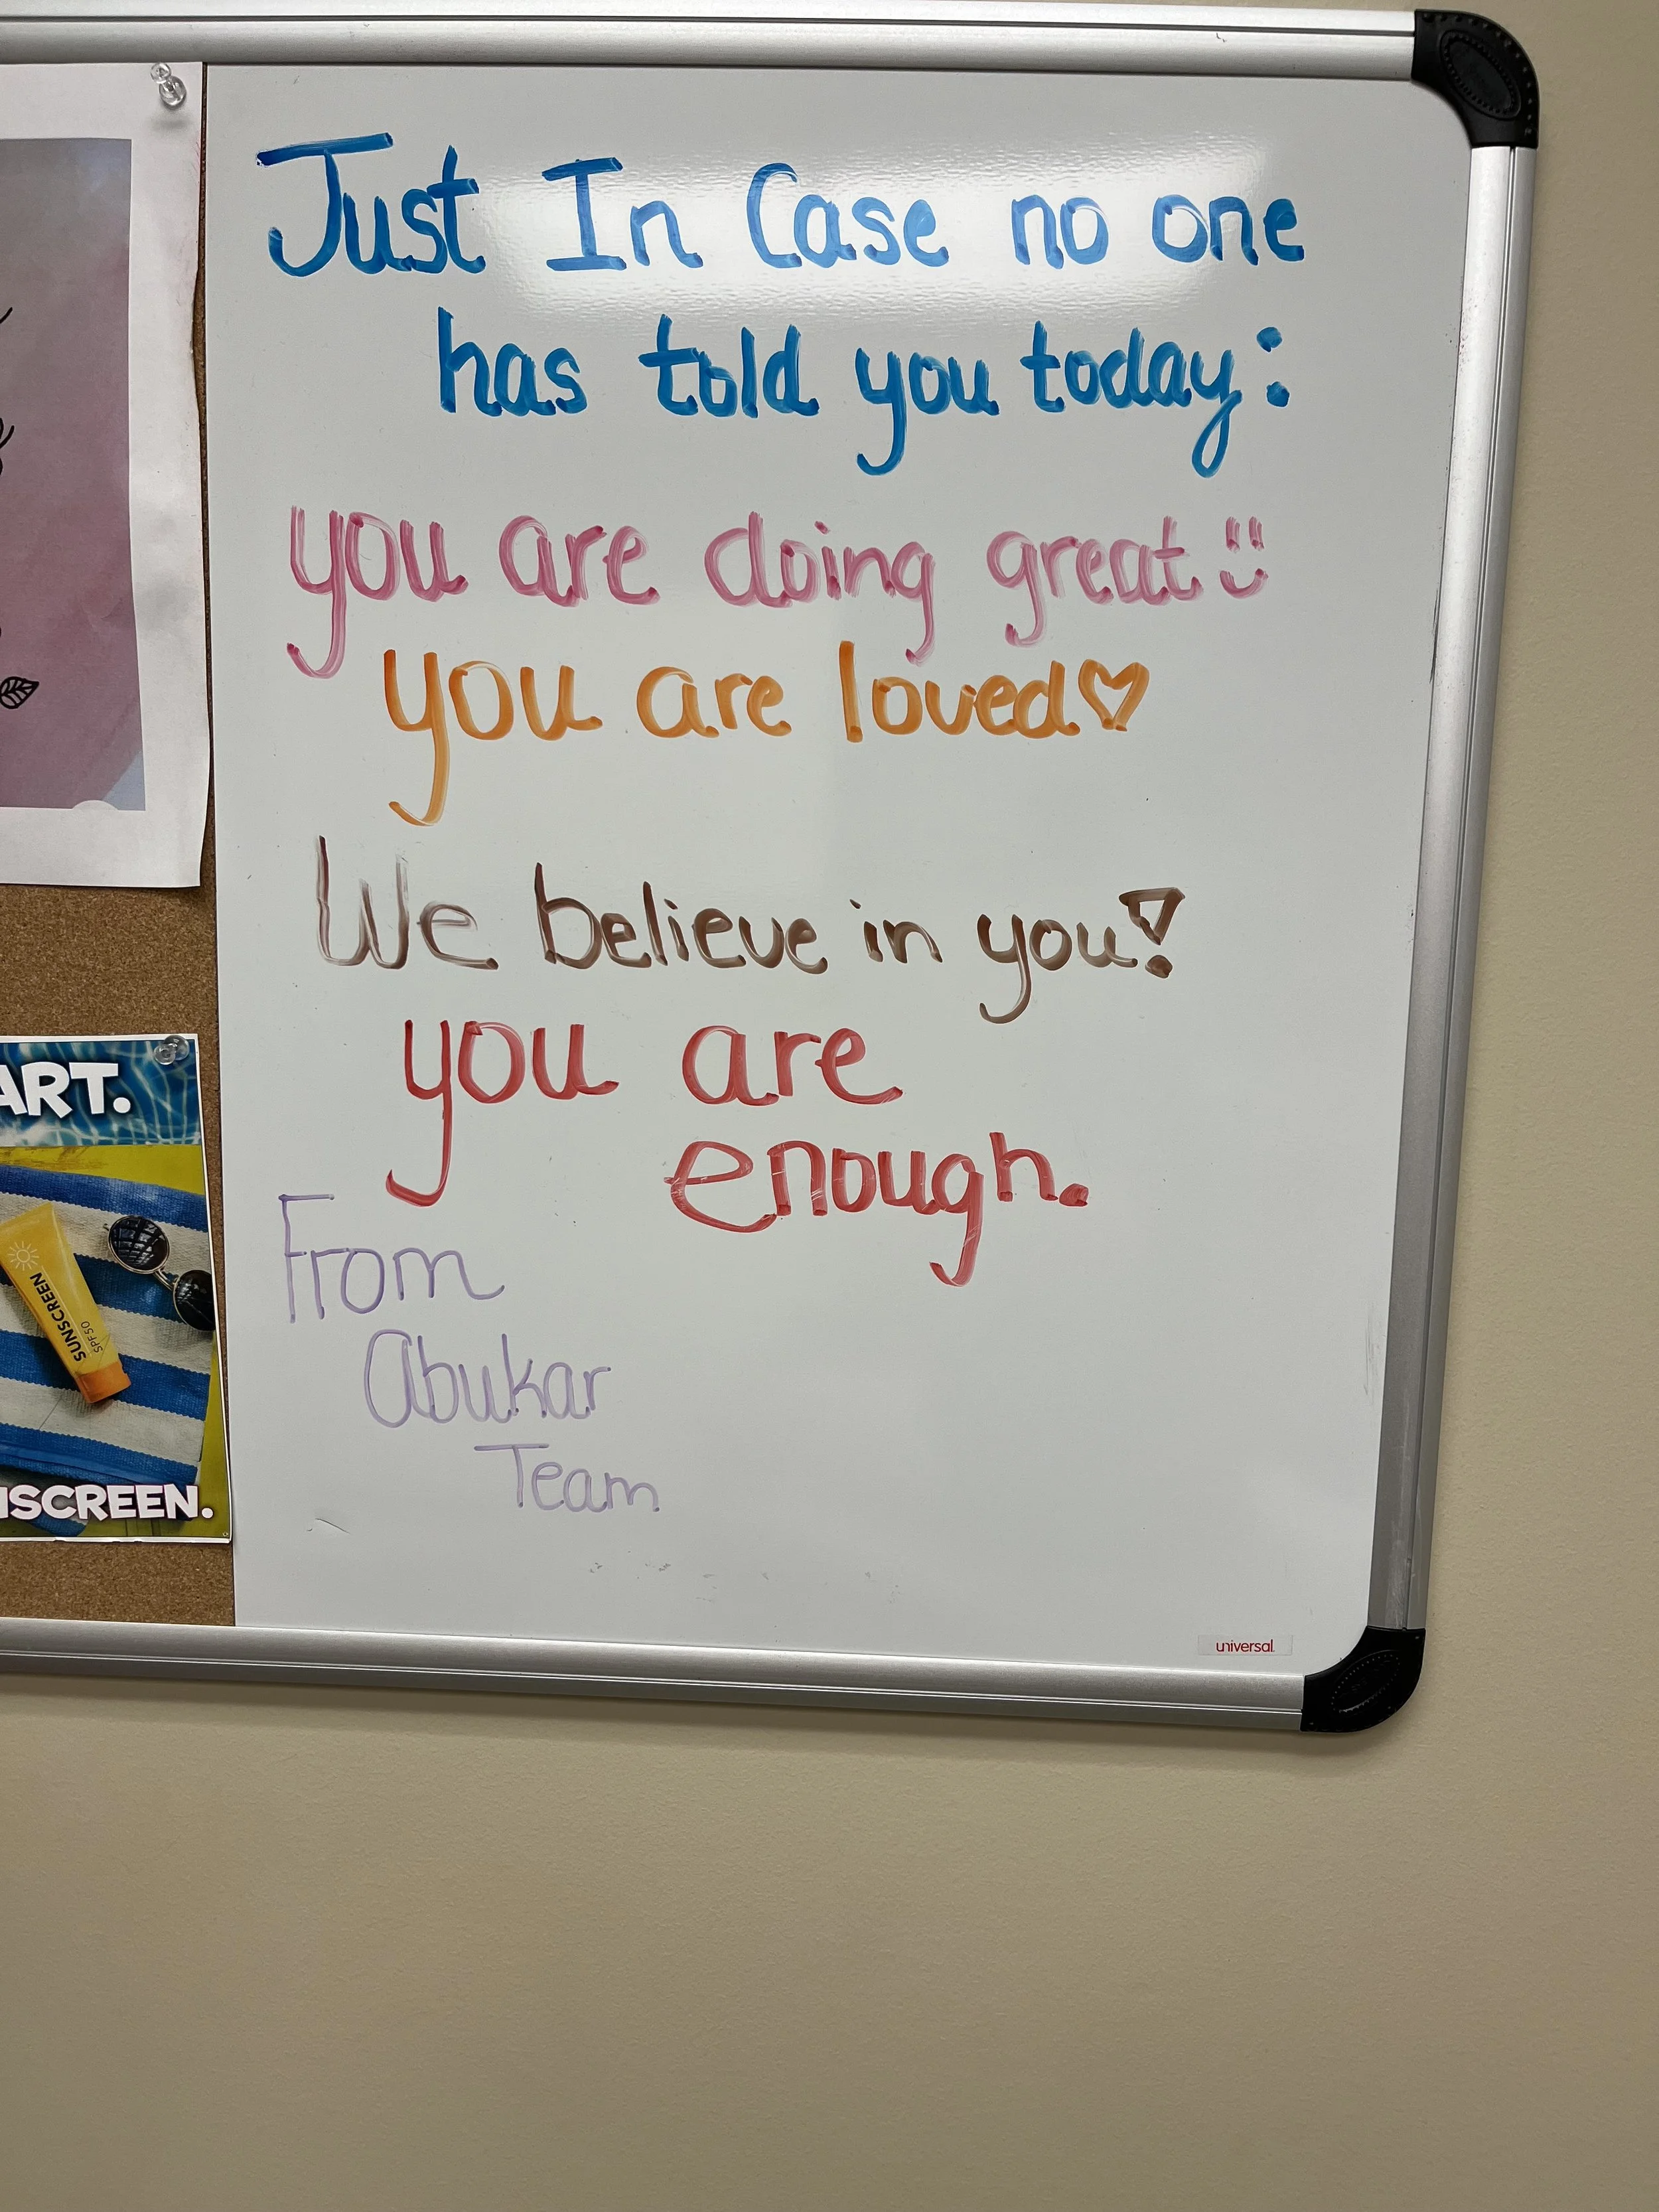 Just In Case no one
has told you today:
you are doing great
you are loved♡
We believe in you!
you are
enough.
From
Abukar
Team
ART.
SUNSCREEN
SPF50
NSCREEN.
universal